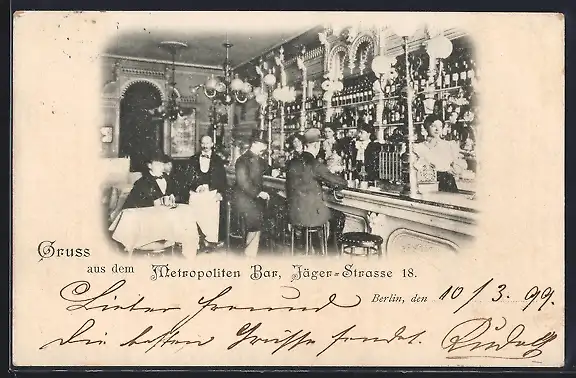 Gruss
aus dem Metropoliten Bar, Jäger=Strasse 18.
Berlin, den 10/3. 99.
Lieber Freund
Die besten Grüsse sendet. Rudolf